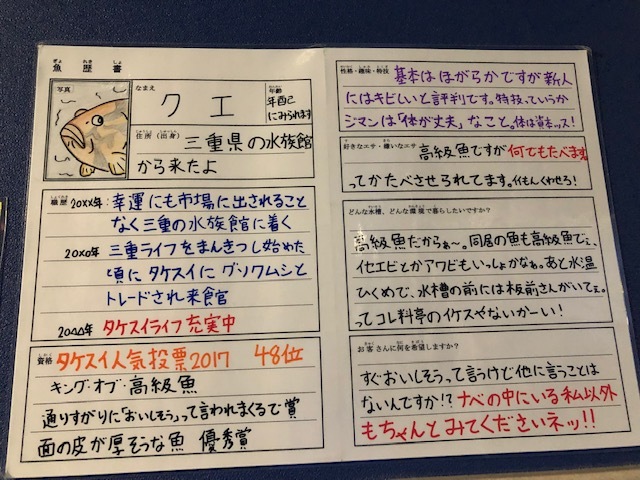 魚歴書
写真
なまえ
クエ
年齢
年齢
年配に
にみられます
住所(出身)
三重県の水族館
から来たよ
職歴
20XX年:幸運にも市場に出されること
なく三重の水族館に着く
20X0年 三重ライフをまんきつし始めた
頃にタケスイにグソクムシと
トレードされ来館
20△△年 タケスイライフ充実中
資格
タケスイ人気投票2017 48位
キング・オブ・高級魚
通りすがりに「おいしそう」って言われまくるで賞
面の皮が厚そうな魚 優秀賞
性格・趣味・特技
基本はほがらかですが新人
にはキビしいと評判です。特技っていうか
ジマンは「体が丈夫」なこと。体は資本ッス!
好きなエサ・嫌いなエサ
高級魚ですが何でもたべます
ってかたべさせられてます。イイもんくわせろ!
どんな水槽、どんな環境で暮らしたいですか?
高級魚だからぁ〜。同居の魚も高級魚でぇ、
イセエビとかアワビもいっしょかなぁ。あと水温
ひくめで、水槽の前には板前さんがいてぇ。
ってコレ料亭のイケスやないかーい!
お客さんに何を希望しますか?
すぐおいしそうって言うけど他に言うことは
ないんですか!?ナベの中にいる私以外
もちゃんとみてくださいネッ!!